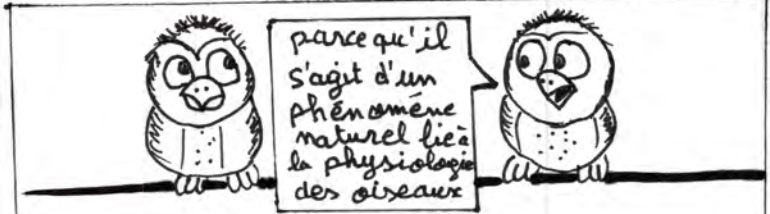 parce qu'il
s'agit d'un
phénomène
naturel lié à
la physiologie
des oiseaux